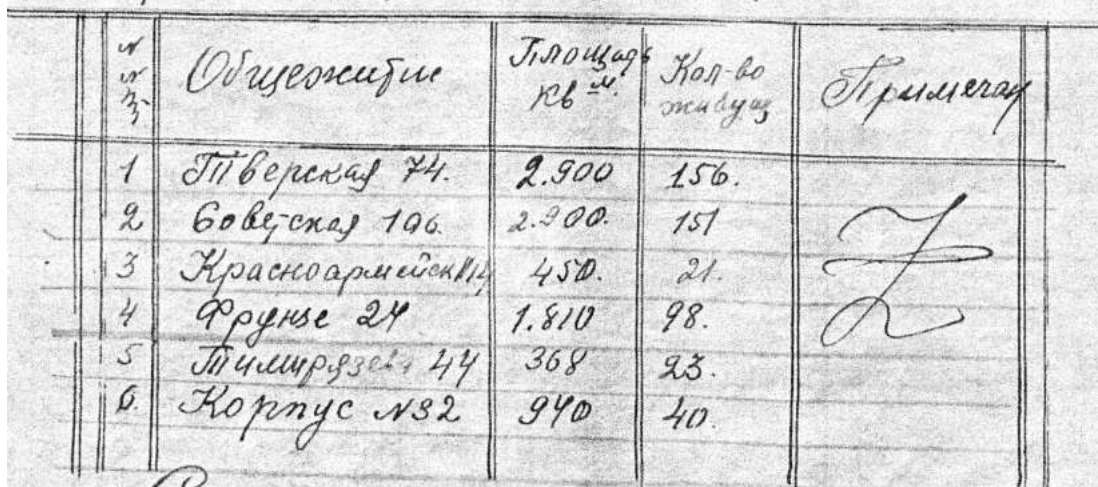 №№ п/п Общежитие Площадь кв м. Кол-во живущ Примечан
1 Тверская 74. 2.900 156.
2 Советская 2.900. 151
3 Красноармейск №14 450. 21.
4 Фрунзе 24 1.810 98.
5 Тимирязева 44 368 23.
6. Корпус №2 940 40.